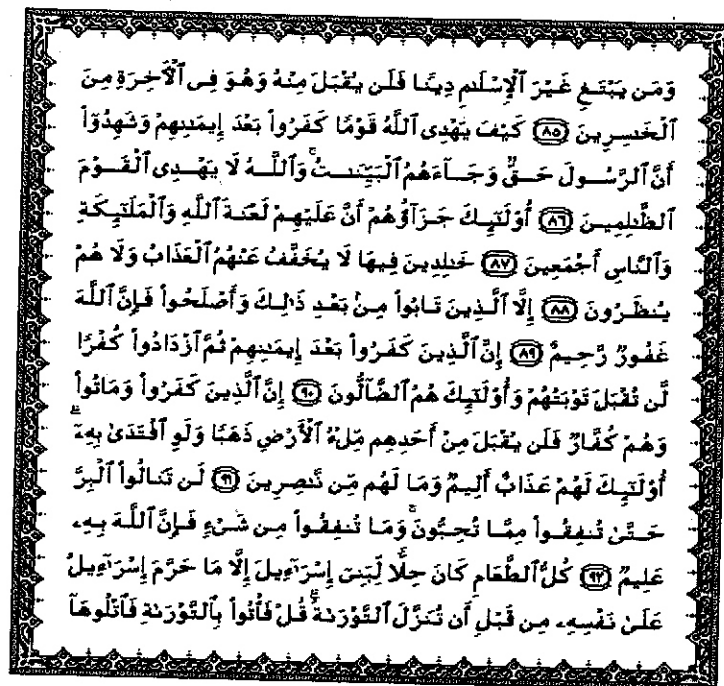 وَمَن يَبْتَغِ غَيْرَ ٱلْإِسْلَٰمِ دِينًا فَلَن يُقْبَلَ مِنْهُ وَهُوَ فِى ٱلْأَخِرَةِ مِنَ
ٱلْخَٰسِرِينَ ٨٥ كَيْفَ يَهْدِى ٱللَّهُ قَوْمًا كَفَرُوا۟ بَعْدَ إِيمَٰنِهِمْ وَشَهِدُوٓا۟
أَنَّ ٱلرَّسُولَ حَقٌّ وَجَآءَهُمُ ٱلْبَيِّنَٰتُ ۚ وَٱللَّهُ لَا يَهْدِى ٱلْقَوْمَ
ٱلظَّٰلِمِينَ ٨٦ أُو۟لَٰٓئِكَ جَزَآؤُهُمْ أَنَّ عَلَيْهِمْ لَعْنَةَ ٱللَّهِ وَٱلْمَلَٰٓئِكَةِ
وَٱلنَّاسِ أَجْمَعِينَ ٨٧ خَٰلِدِينَ فِيهَا لَا يُخَفَّفُ عَنْهُمُ ٱلْعَذَابُ وَلَا هُمْ
يُنظَرُونَ ٨٨ إِلَّا ٱلَّذِينَ تَابُوا۟ مِنۢ بَعْدِ ذَٰلِكَ وَأَصْلَحُوا۟ فَإِنَّ ٱللَّهَ
غَفُورٌ رَّحِيمٌ ٨٩ إِنَّ ٱلَّذِينَ كَفَرُوا۟ بَعْدَ إِيمَٰنِهِمْ ثُمَّ ٱزْدَادُوا۟ كُفْرًا
لَّن تُقْبَلَ تَوْبَتُهُمْ وَأُو۟لَٰٓئِكَ هُمُ ٱلضَّآلُّونَ ٩٠ إِنَّ ٱلَّذِينَ كَفَرُوا۟ وَمَاتُوا۟
وَهُمْ كُفَّارٌ فَلَن يُقْبَلَ مِنْ أَحَدِهِم مِّلْءُ ٱلْأَرْضِ ذَهَبًا وَلَوِ ٱفْتَدَىٰ بِهِۦٓ ۗ
أُو۟لَٰٓئِكَ لَهُمْ عَذَابٌ أَلِيمٌ وَمَا لَهُم مِّن نَّٰصِرِينَ ٩١ لَن تَنَالُوا۟ ٱلْبِرَّ
حَتَّىٰ تُنفِقُوا۟ مِمَّا تُحِبُّونَ ۚ وَمَا تُنفِقُوا۟ مِن شَىْءٍ فَإِنَّ ٱللَّهَ بِهِۦ
عَلِيمٌ ٩٢ كُلُّ ٱلطَّعَامِ كَانَ حِلًّا لِّبَنِىٓ إِسْرَٰٓءِيلَ إِلَّا مَا حَرَّمَ إِسْرَٰٓءِيلُ
عَلَىٰ نَفْسِهِۦ مِن قَبْلِ أَن تُنَزَّلَ ٱلتَّوْرَىٰةُ ۗ قُلْ فَأْتُوا۟ بِٱلتَّوْرَىٰةِ فَٱتْلُوهَآ